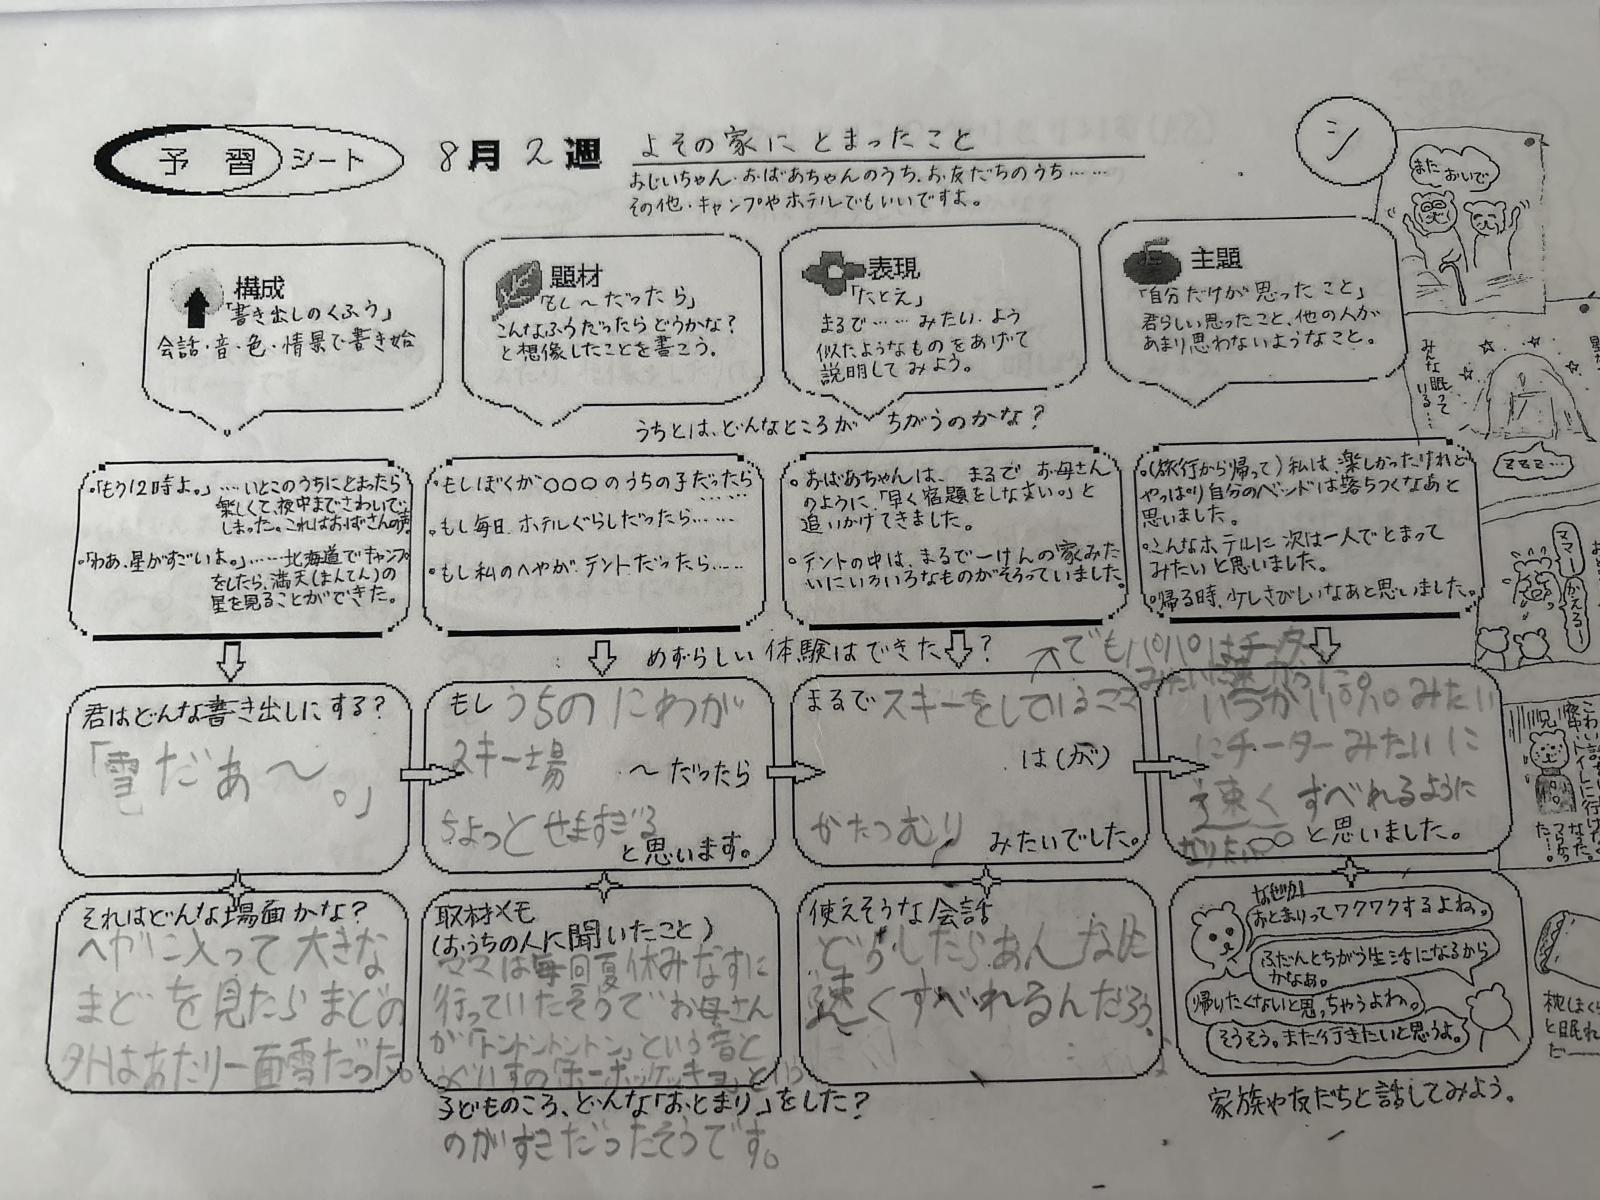 予習シート 8月2週 よその家にとまったこと
おじいちゃん・おばあちゃんのうち、お友だちのうち……
その他・キャンプやホテルでもいいですよ。
シ
構成
「書き出しのくふう」
会話・音・色・情景で書き始
題材
「もし〜だったら」
こんなふうだったらどうかな?
と想像したことを書こう。
表現
「たとえ」
まるで……みたい．よう
似たようなものをあげて
説明してみよう。
主題
「自分だけが思ったこと」
君らしい思ったこと、他の人が
あまり思わないようなこと。
うちとは、どんなところが ちがうのかな?
・「もう12時よ。」……いとこのうちにとまったら
楽しくて、夜中までさわいで
しまった。これはおばさんの声。
・「わあ、星がすごいよ。」……北海道でキャンプ
をしたら、満天(まんてん)の
星を見ることができた。
・もしぼくが〇〇〇のうちの子だったら
……
・もし毎日、ホテルぐらしだったら……
・もし私のへやが、テントだったら……
・おばあちゃんは、まるで お母さん
のように、「早く宿題をしなさい。」と
追いかけてきました。
・テントの中は、まるで一けんの家みた
いにいろいろなものがそろっていました。
・(旅行から帰って)私は、楽しかったけれど
やっぱり自分のベッドは落ちつくなあと
思いました。
・こんなホテルに次は一人でとまって
みたいと思いました。
・帰る時、少しさびしいなあと思いました。
めずらしい体験はできたかな?
でもパパはチーター
みたいに速かった
君はどんな書き出しにする?
「雪だぁ〜。」
もし うちのにわが
スキー場
〜だったら
ちょっとせますぎる
と思います。
まるで スキーをしているママ
は(が)
かたつむり
みたいでした。
いつかパパみたい
にチーターみたいに
速くすべれるように
なりたい
と思いました。
それはどんな場面かな?
へやに入って大きな
まどを見たらまどの
外はあたり一面雪だった。
取材メモ
(おうちの人に聞いたこと)
ママは毎回夏休みなすに
行っていたそうでお母さん
が「トントントントン」という音と
うぐいすの「ホーホッケキョ」という
子どものころ、どんな「おとまり」をした?
のがすきだったそうです。
使えそうな会話
どうしたらあんなに
速くすべれるんだろう。
なぜか!
おとまりってワクワクするよね。
ふだんとちがう生活になるから
かなぁ。
帰りたくないと思っちゃうよね。
そうそう。また行きたいと思うよ。
家族や友だちと話してみよう。
また
おいで
みんな眠って
いる…
ZZZ…
ママー
かえるー
こわい話
夜中トイレに行けなく
なった。
つらかっ
た…。
枕
と眠れ
た